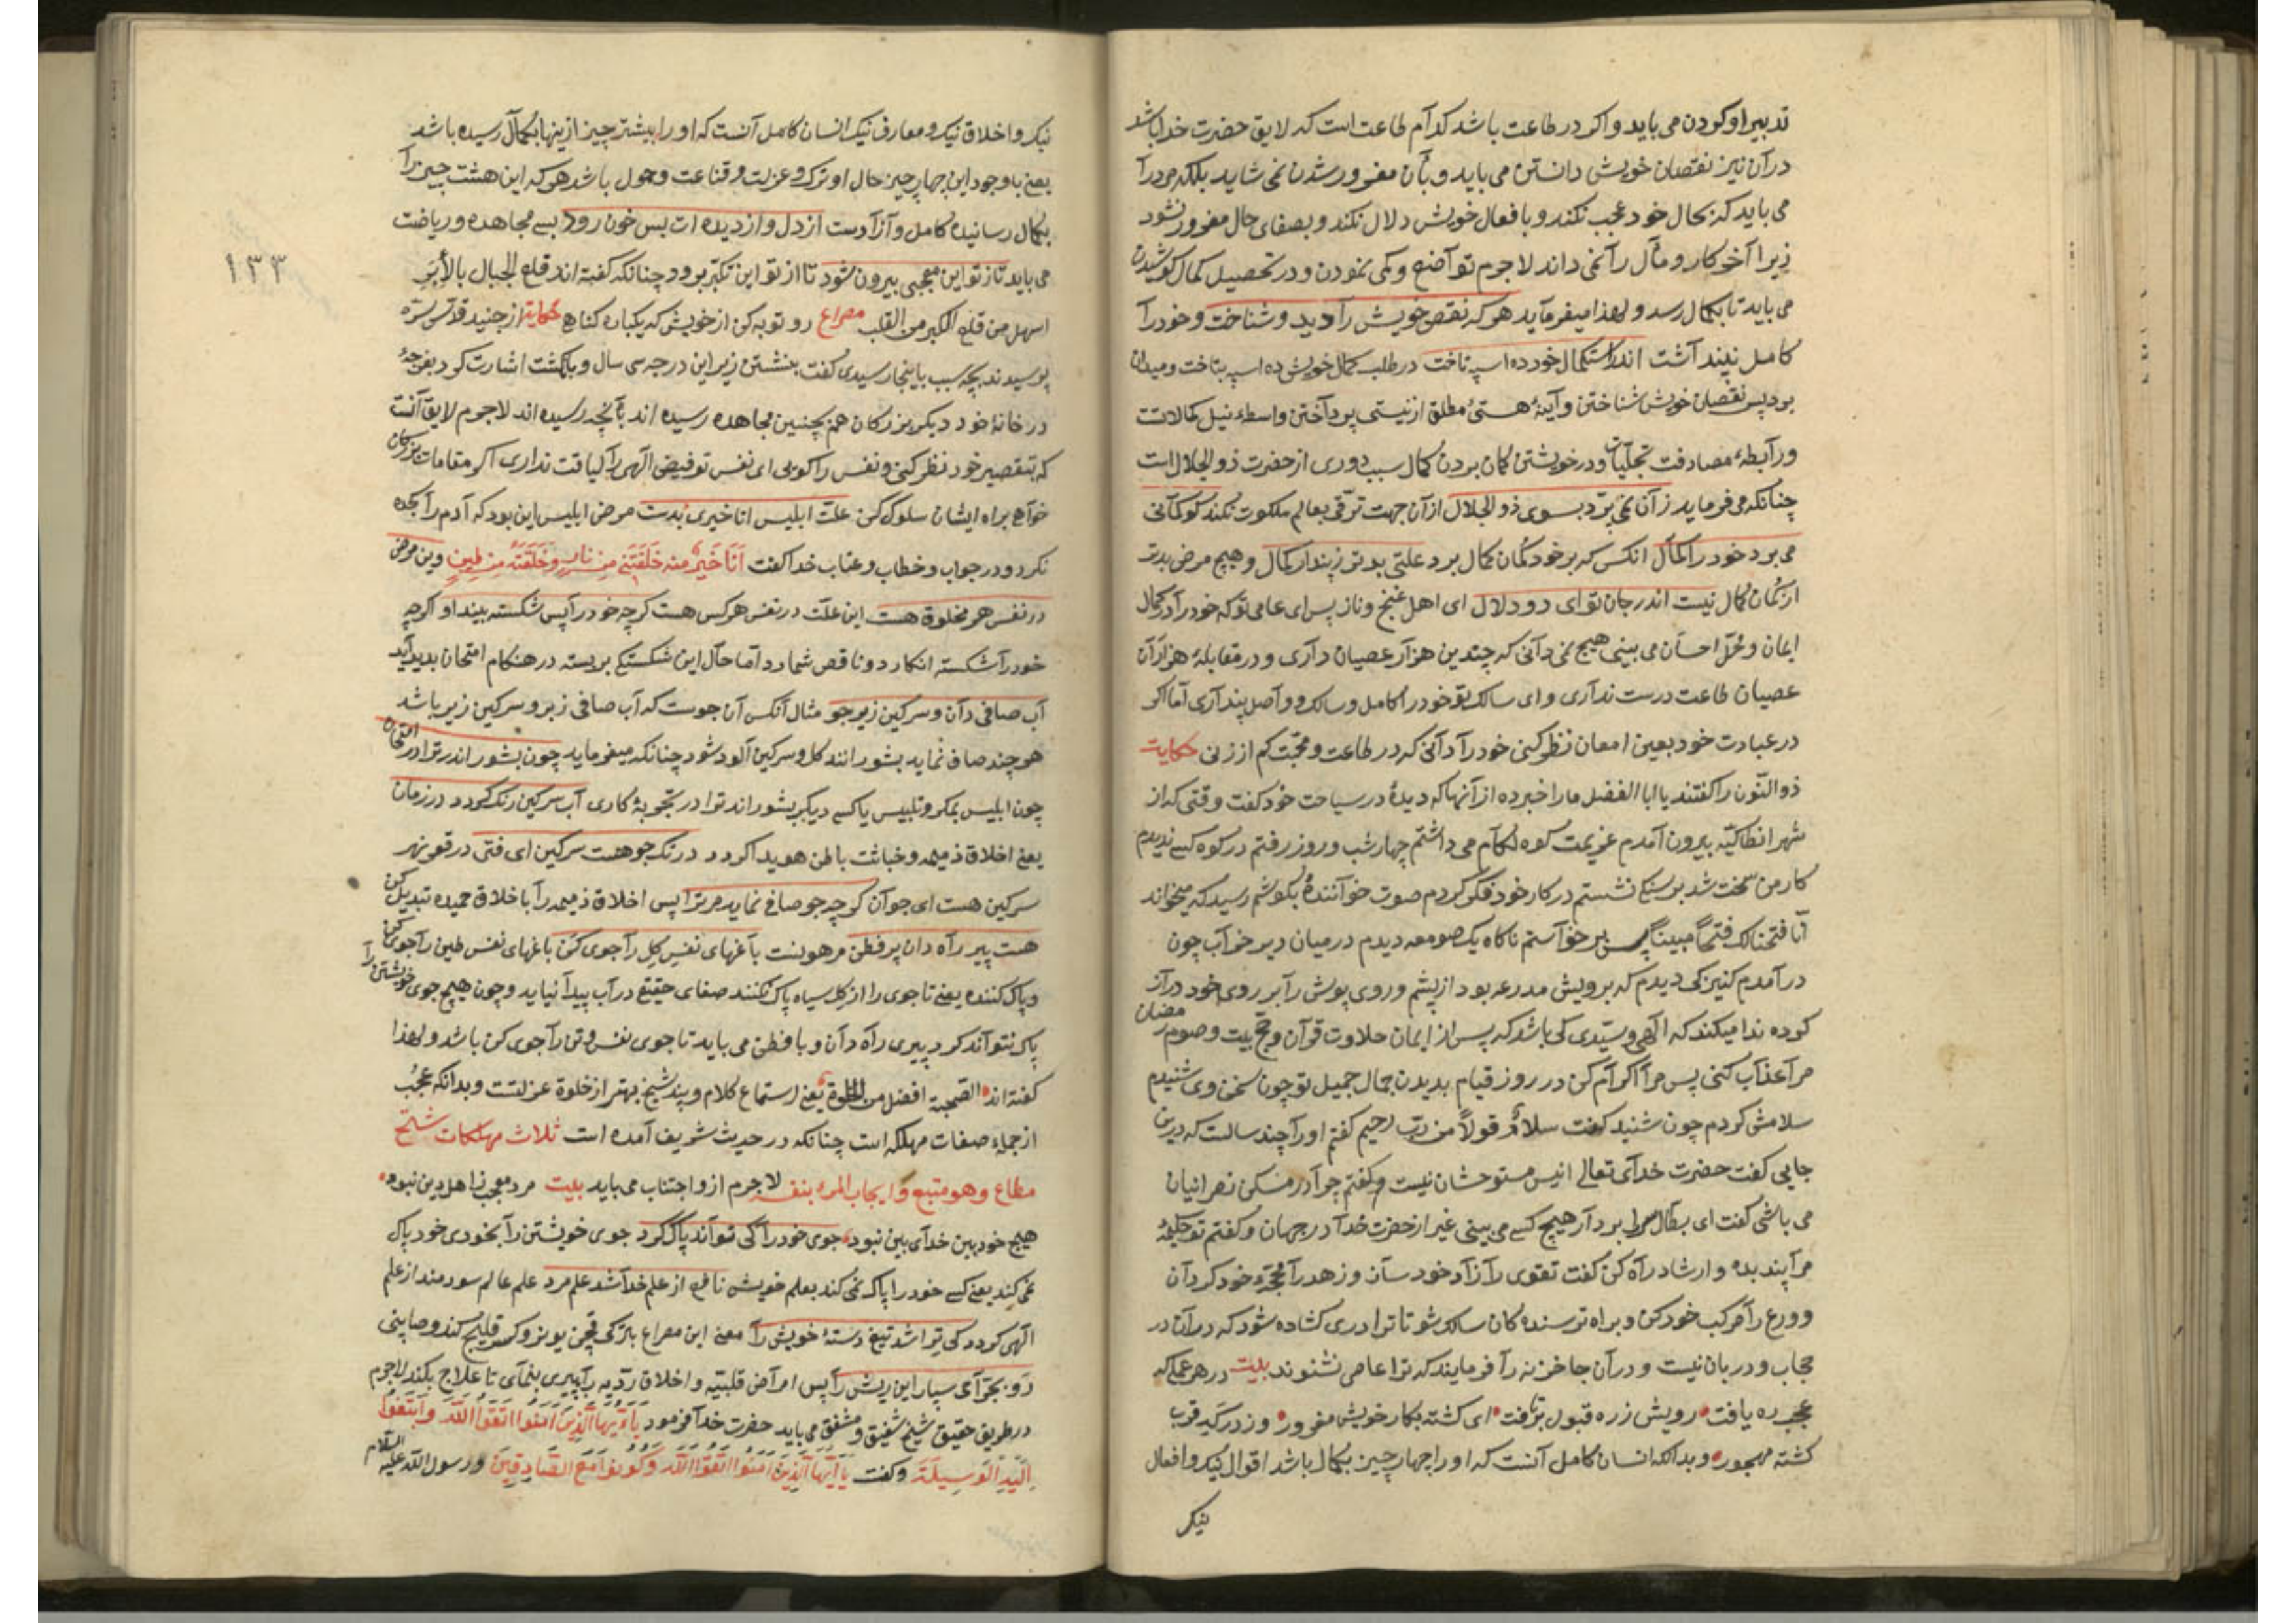 تدبیر او کردن می باید و اکر در طاعت باشد کدام طاعت است که لایق حضرت خدا باشد
در آن نیز نقصان خویش دانستن می باید و بآن مغرور شدن نمی شاید بلکه مرد را
می باید که بحال خود عجب نکند و بافعال خویش دلال نکند و بصفای حال مغرور نشود
زیرا آخر کار و مآل را نمی داند لاجرم تواضع و کمی نمودن و در تحصیل کمال کوشیدن
می باید تا بکمال رسد و لهذا میفرماید هر که نقص خویش را دید و شناخت و خود را
کامل ندید آشت اندر استکمال خود ده اسپه تاخت در طلب کمال خویش ده اسپه بتاخت و میدان
برد پس نقصان خویش شناختن و آینهٔ هستی مطلق از نیستی پرداختن واسطهٔ نیل کمالات
و رابطهٔ مصادفت تجلیات و در خویشتن کمان بردن کمال سبب دوری از حضرت ذو الجلال است
چنانکه می فرماید زآن نمی پرد بسوی ذو الجلال از آن جهت ترقی بعالم ملکوت نکند کو کمانی
می برد خود را کمال انکس که بر خود کمان کمال برد علتی بدتر ز پندار کمال و هیچ مرض بدتر
از کمان کمال نیست اندر جان تو ای دودلال ای اهل غنج و ناز پس ای عامی تو که خود را در کمال
ایمان و محل احسان می بینی هیچ نمی دانی که چندین هزار عصیان داری و در مقابلهٔ هزاران
عصیان طاعت درست نداری و ای سالک تو خود را کامل و سالک و واصل پنداری اما اکر
در عبادت خود بعین امعان نظر کنی خود را دانی که در طاعت و محبت کم از زنی حکایت
ذو النّون را کفتند یا ابا الفضل ما را خبر ده از آنها که دیدهٔ در سیاحت خود کفت وقتی که از
شهر انطاکیّه بیرون آمدم عزیمت کوه لکام می داشتم چهار شب و روز رفتم در کوه کسی ندیدم
کار من سخت شد بر سنکی نشستم در کار خود فکر کردم صوت خوانندهٔ بکوشم رسید که میخواند
انا فتحنا لک فتحاً مبیناً پس بر خواستم ناکاه یک صومعه دیدم در میان دیر خراب چون
در آمدم کنیزکی دیدم که برویش مدرعه بود از پشم و روی پوش را بر روی خود دراز
کرده ندا میکند که الهی و سیدی کی باشد که پس از ایمان حلاوت قرآن و حجّ بیت و صوم رمضان
مرا عذاب کنی پس مرا اکرام کن در روز قیام بدیدن جمال جمیل تو چون سخن وی شنیدم
سلامش کردم چون شنید کفت سلامٌ قولاً من ربّ رحیم کفتم او را چند سالست که درین
جایی کفت حضرت خدای تعالی انیس مستوحشان نیست و کفتم چرا در مسکن نصرانیان
می باشی کفت ای بطّال بردار هیچ کسی می بینی غیر از حضرت خدا در جهان و کفتم تو حکیمهٔ
مرا پند بده و ارشاد راه کن کفت تقوی را زاد خود سآز و زهد را خود کردان
و ورع را مرکب خود کن و براه ترسنده کان سالک شو تا ترا دری کشاده شود که در آن در
حجاب و دربان نیست و در آن جا خزنه را فرمایند که ترا عاصی نشنوند بیت در هر عملی که
عجب ره یافت رویش ز ره قبول برتافت ای کشته بکار خویش مغرور وز درکه قرب
کشته مهجور و بدانکه انسان کامل آنست که او را چهار چیز بکمال باشد اقوال نیک و افعال
نیک
نیک و اخلاق نیک و معارف نیک انسان کامل آنست که او را بیشتر چیز ازینها بکمال رسیده باشد
یعنی با وجود این چهار چیز حال او ترک و عزلت و قناعت و خمول باشد هر که این هشت چیز را
بکمال رسانیده کامل و آزادست از دل و از دیده ات بس خون رود بسی مجاهده و ریاضت
می باید تا ز تو این معجبی بیرون شود تا از تو این تکبّر برود چنانکه کفته اند قلع الجبال بالأبر
اسهل من قلع الکبر من القلب مصراع رو توبه کن از خویش که یکباره کناهی حکایت از جنید قدّس سرّه
پرسیدند بچه سبب باینجا رسیدی کفت بنشستن زیر این درجه سی سال و بانکشت اشارت کرد بدرجهٔ
در خانهٔ خود دیکر بزرکان هم بچنین مجاهده رسیده اند بآنچه رسیده اند لاجرم لایق آنست
که بتقصیر خود نظر کنی و نفس را کویی ای نفس تو فیض الهی را لیاقت نداری اکر مقامات بزرکان
خواهی براه ایشان سلوک کن علت ابلیس انا خیری بدست مرض ابلیس این بود که آدم را سجده
نکرد و در جواب و خطاب و عتاب خدا کفت اَنَا خَیْرٌ مِنْهُ خَلَقْتَنِی مِنْ نَارٍ وَخَلَقْتَهُ مِنْ طِینٍ وین مرض
در نفس هر مخلوق هست این علت در نفس هر کس هست کرچه خود را بس شکسته بیند او اکرچه
خود را شکسته انکارد و ناقص شمارد اما حال این شکستکی بر بسته در هنکام امتحان بدید آید
آب صافی دان و سرکین زیر جو مثال آنکس آن جوست که آب صافی زبر و سرکین زیر باشد
هر چند صاف نماید بشورانند کل و سرکین آلود شود چنانکه میفرماید چون بشوراند ترا در امتحان
چون ابلیس بمکر و تلبیس یا کسی دیکر بشوراند ترا در تجربه کاری آب سرکین رنک کردد در زمان
یعنی اخلاق ذمیمه و خباثت باطن هویدا کردد در تک جو هست سرکین ای فتی در قعر نهر
سرکین هست ای جوان کرچه جو صافی نماید مر ترا پس اخلاق ذمیمه را با خلاق حمیده تبدیل کن
هست پیر راه دان پر فطن مر هویست باغهای نفس کل را جوی کن باغهای نفس طین را جوی کن
و پاک کننده یعنی تا جوی را از کل سیاه پاک نکنند صفای حقیقی در آب پیدا نیاید و چون هیچ جوی خویشتن را
پاک نتواند کرد پیری راه دان و با فطن می باید تا جوی نفس و تن را جوی کن باشد و لهذا
کفته اند الصّحبة افضل من الخلوة یعنی استماع کلام و پند شیخ بهتر از خلوة عزلتست و بدانکه عجب
از جملهٔ صفات مهلکه است چنانکه در حدیث شریف آمده است ثلاث مهلکات شحّ
مطاع و هو متبع و ایجاب المرء بنفسه لاجرم ازو اجتناب می باید بیت مرد معجب ز اهل دین نبود
هیچ خودبین خدای بین نبود جوی خود را کی تواند پاک کرد جوی خویشتن را بخودی خود پاک
نمی کند یعنی کسی خود را پاک نمی کند بعلم خویش نافع از علم خدا شد علم مرد علم عالم سودمند از علم
الهی کردد کی تراشد تیغ دستهٔ خویش را معنی این مصراع بترکی قچن یونر کندو صاپنی
رو بجرّاحی سپار این ریش را پس امراض قلبیّه و اخلاق ردّیه را بپیری بنمای تا علاج بکند لاجرم
در طریق حقیق شیخ شفیق و مشفق می باید حضرت خدا فرمود یَا اَیُّهَا الَّذِینَ اٰمَنُوا اتَّقُوا اللّٰهَ وَابْتَغُوا
اِلَیْهِ الْوَسِیلَةَ و کفت یَا اَیُّهَا الَّذِینَ اٰمَنُوا اتَّقُوا اللّٰهَ وَکُونُوا مَعَ الصَّادِقِینَ و رسول اللّٰه علیه السلام
١٣٣